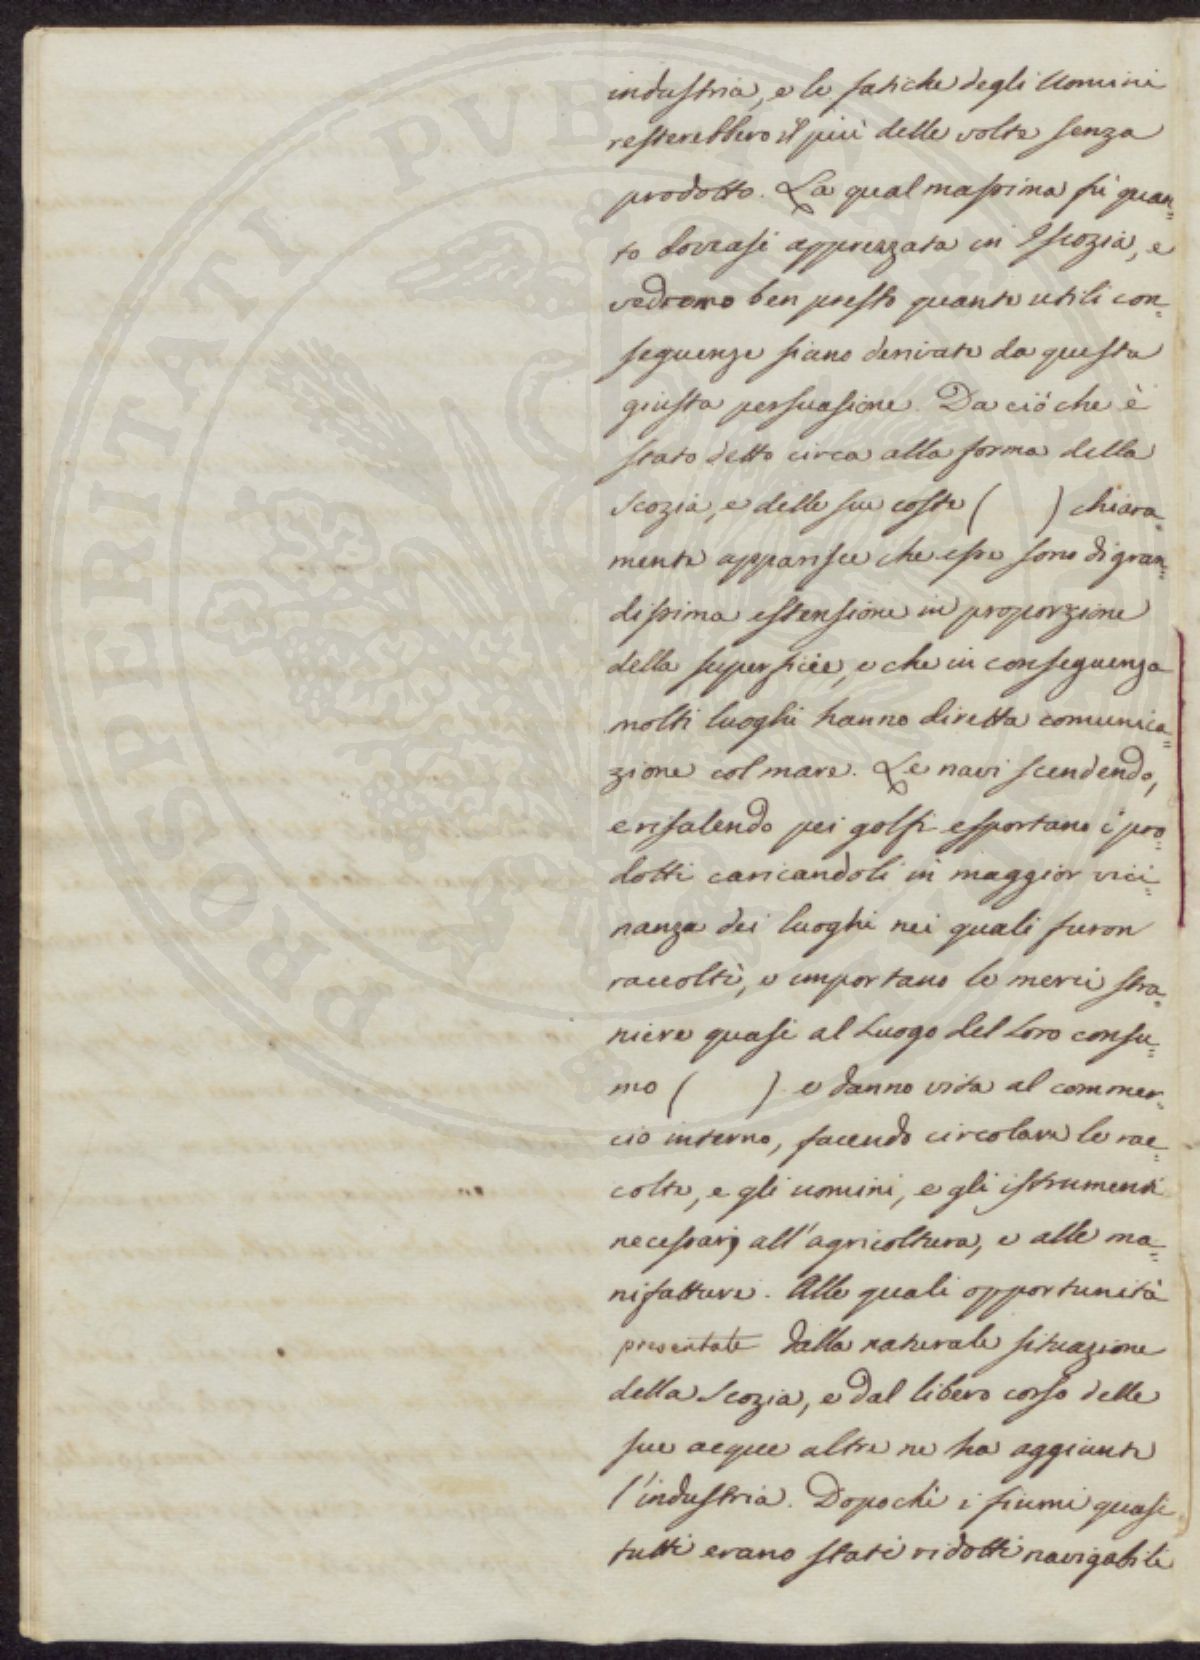 industria, e le fatiche degli Uomini
resterebbero il più delle volte senza
prodotto. La qual massima fù quan=
to doveasi apprezzata in Iscozia, e
vedremo ben presto quante utili con=
seguenze siano derivate da questa
giusta persuasione. Da ciò che è
stato detto circa alla forma della
Scozia, e delle sue coste (      ) chiara=
mente apparisce che esse sono di gran=
dissima estensione in proporzione
della superficie, e che in conseguenza
molti luoghi hanno diretta comunica=
zione col mare. Le navi scendendo,
e risalendo pei golfi esportano i pro=
dotti caricandoli in maggior vici=
nanza dei luoghi nei quali furon
raccolti, e importano le merci stra=
niere quasi al Luogo del Loro consu=
mo (      ) e danno vita al commer=
cio interno, facendo circolare le rac=
colte, e gli uomini, e gli istrumenti
necessarj all'agricoltura, e alle ma=
nifatture. Alle quali opportunità
presentate dalla naturale situazione
della Scozia, e dal libero corso delle
sue acque altre ne ha aggiunte
l'industria. Dopochè i fiumi quasi
tutti erano stati ridotti navigabili
PROSPERITATI PVBLICAE